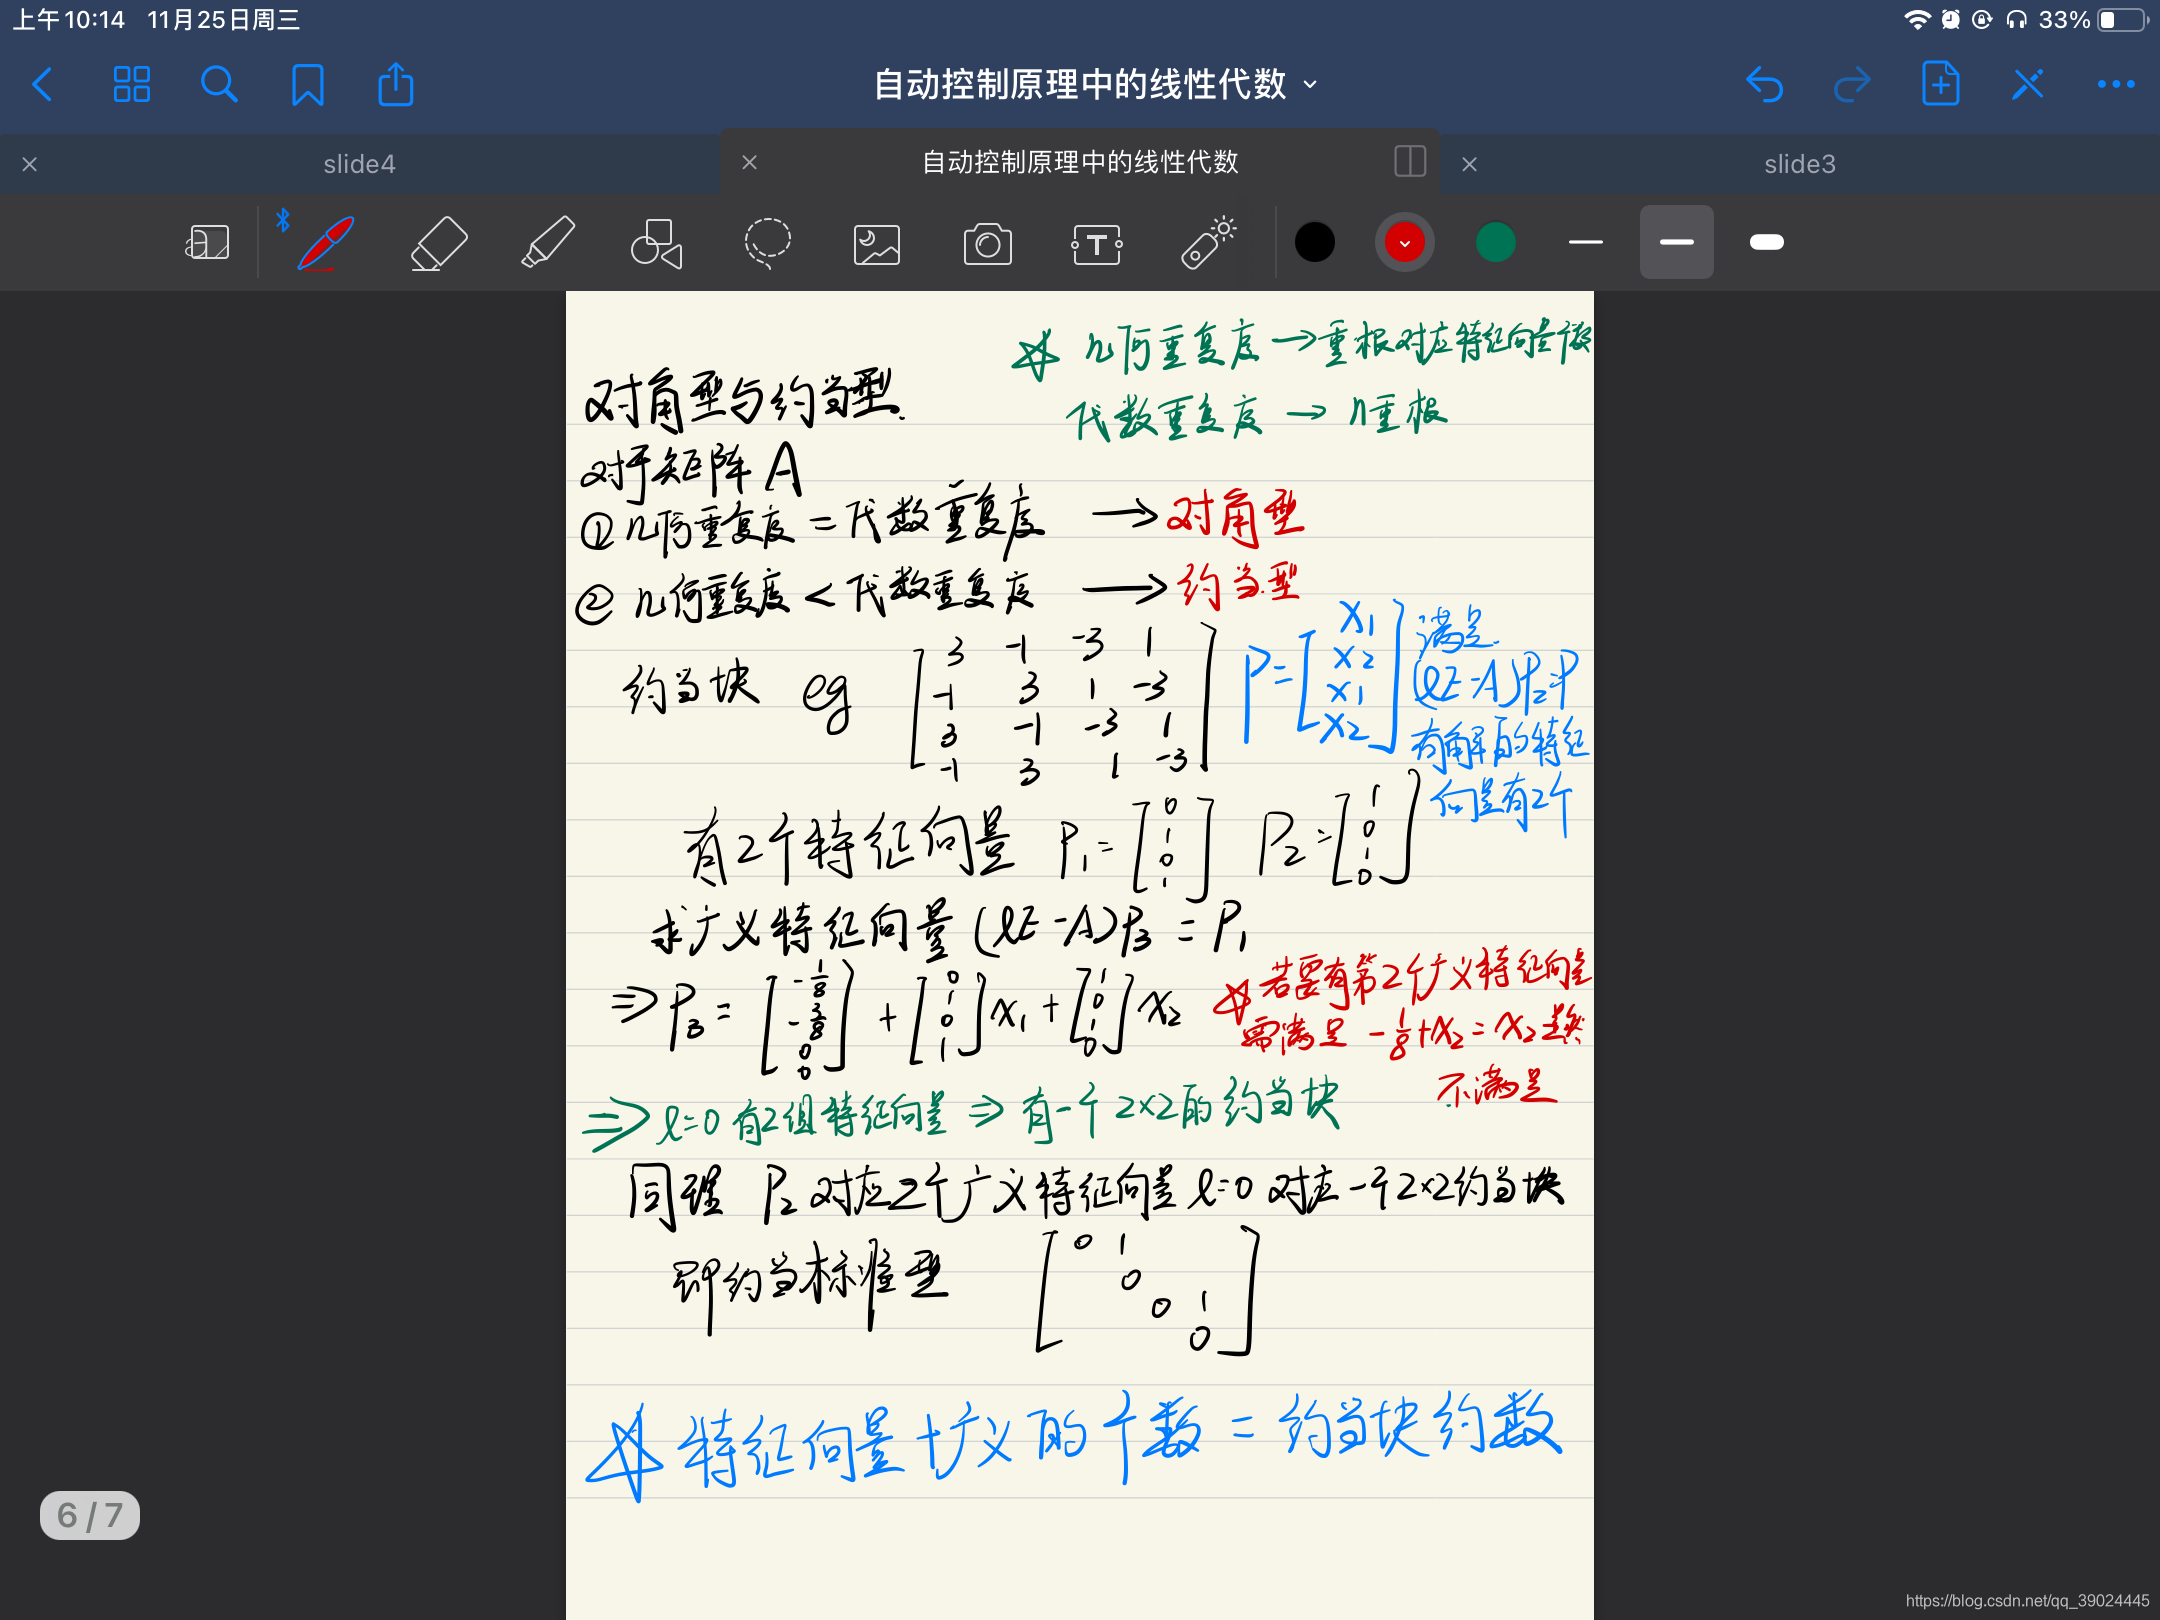 上午10:14 11月25日周三
33%
自动控制原理中的线性代数
slide4
自动控制原理中的线性代数
slide3
几何重复度→重根对应特征向量个数
代数重复度→n重根
对角型与约当型.
对于矩阵A
①几何重复度=代数重复度→对角型
②几何重复度<代数重复度→约当型
约当块 eg
3 -1 -3 1
-1 3 1 -3
3 -1 -3 1
-1 3 1 -3
P=[x1 x2 x1 x2]
满足
(λE-A)P2=P
有解的特征
向量有2个
有2个特征向量 P1=[0 1 0 1] P2=[1 0 1 0]
求广义特征向量(λE-A)P3=P1
⇒P3=[-1/8 -3/8 0 0]+[0 1 0 1]x1+[1 0 1 0]x2
若要有第2个广义特征向量
需满足 -1/8+x2=x2显然
不满足
⇒λ=0有2组特征向量⇒有一个2×2的约当块
同理 P2对应2个广义特征向量λ=0对应一个2×2约当块
即约当标准型
0 1
0
0 1
0
特征向量+广义的个数=约当块约数
6/7
https://blog.csdn.net/qq_39024445